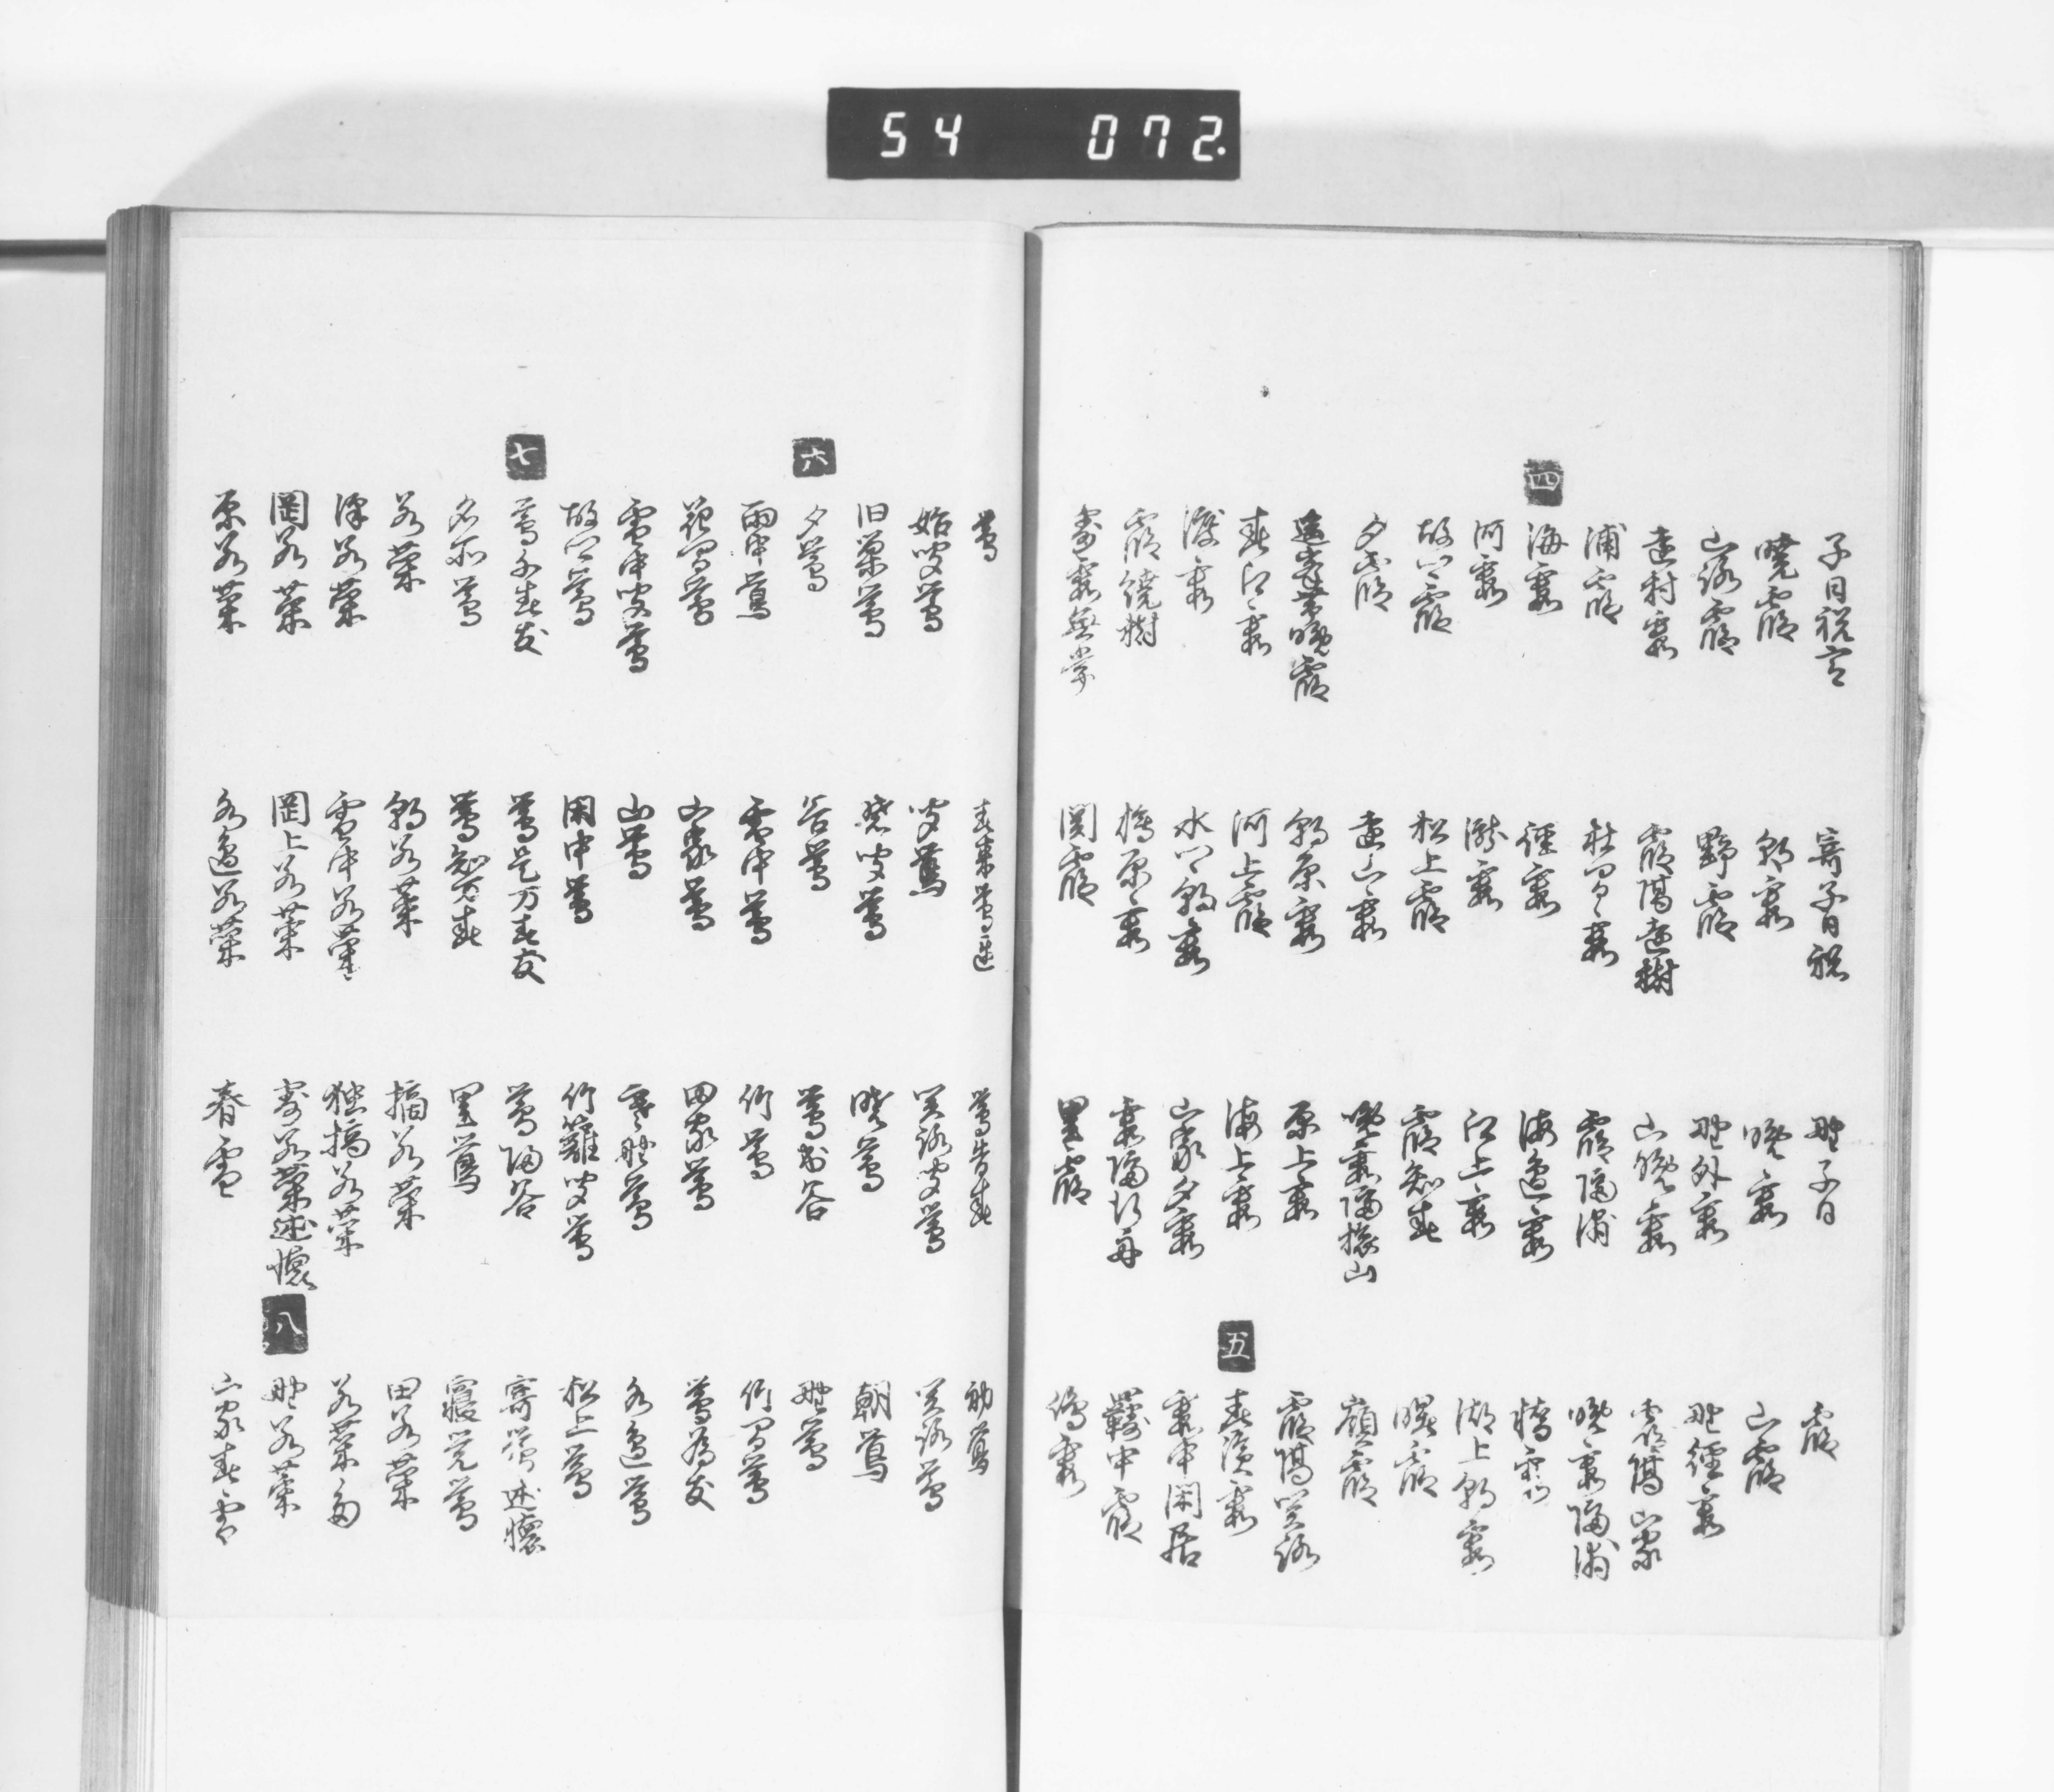 54 072.
子日祝言 寄子日祝 野子日 霞
暁霞 朝霞 晩霞 山霞
山路霞 野霞 野外霞 野径霞
遠村霞 霞隔遠樹 山晩霞 霞隔山家
浦霞 杜間霞 霞隔浦 晩霞隔浦
四 海霞 径霞 海辺霞 橋霞
河霞 瀧霞 江上霞 湖上朝霞
故郷霞 松上霞 霞知春 暁霞
夕霞 遠山霞 晩霞隔 山 嶺霞
遠嶺帯晩霞 朝原霞 原上霞 霞隔関路
春江霞 河上霞 海上霞 五 春浜霞
霞 水郷朝霞 山家夕霞 霞中閑居
霞繞樹 原霞 霞隔行舟 羇中霞
寄霞無常 関霞 里霞 霞
鶯 春来鶯遅 鶯告春 初鶯
始聞鶯 聞鶯 関路聞鶯 関路鶯
旧巣鶯 暁聞鶯 暁鶯 朝鶯
六 夕鶯 谷鶯 鶯出谷 野鶯
雨中鶯 雪中鶯 竹鶯 竹間鶯
花間鶯 山家鶯 田家鶯 鶯為友
雪中聞鶯 山鶯 野鶯 水辺鶯
故郷鶯 閑中鶯 竹籬聞鶯 松上鶯
七 鶯千春友 鶯是万春友 鶯帰谷 寄鶯述懐
名所鶯 鶯知万春 里鶯 寝覚鶯
若菜 朝若菜 摘若菜 田若菜
沢若菜 雪中若菜 独摘若菜 若菜多
岡若菜 岡上若菜 寄若菜述懐 八 野若菜
原若菜 水辺若菜 春雪 山家春雪